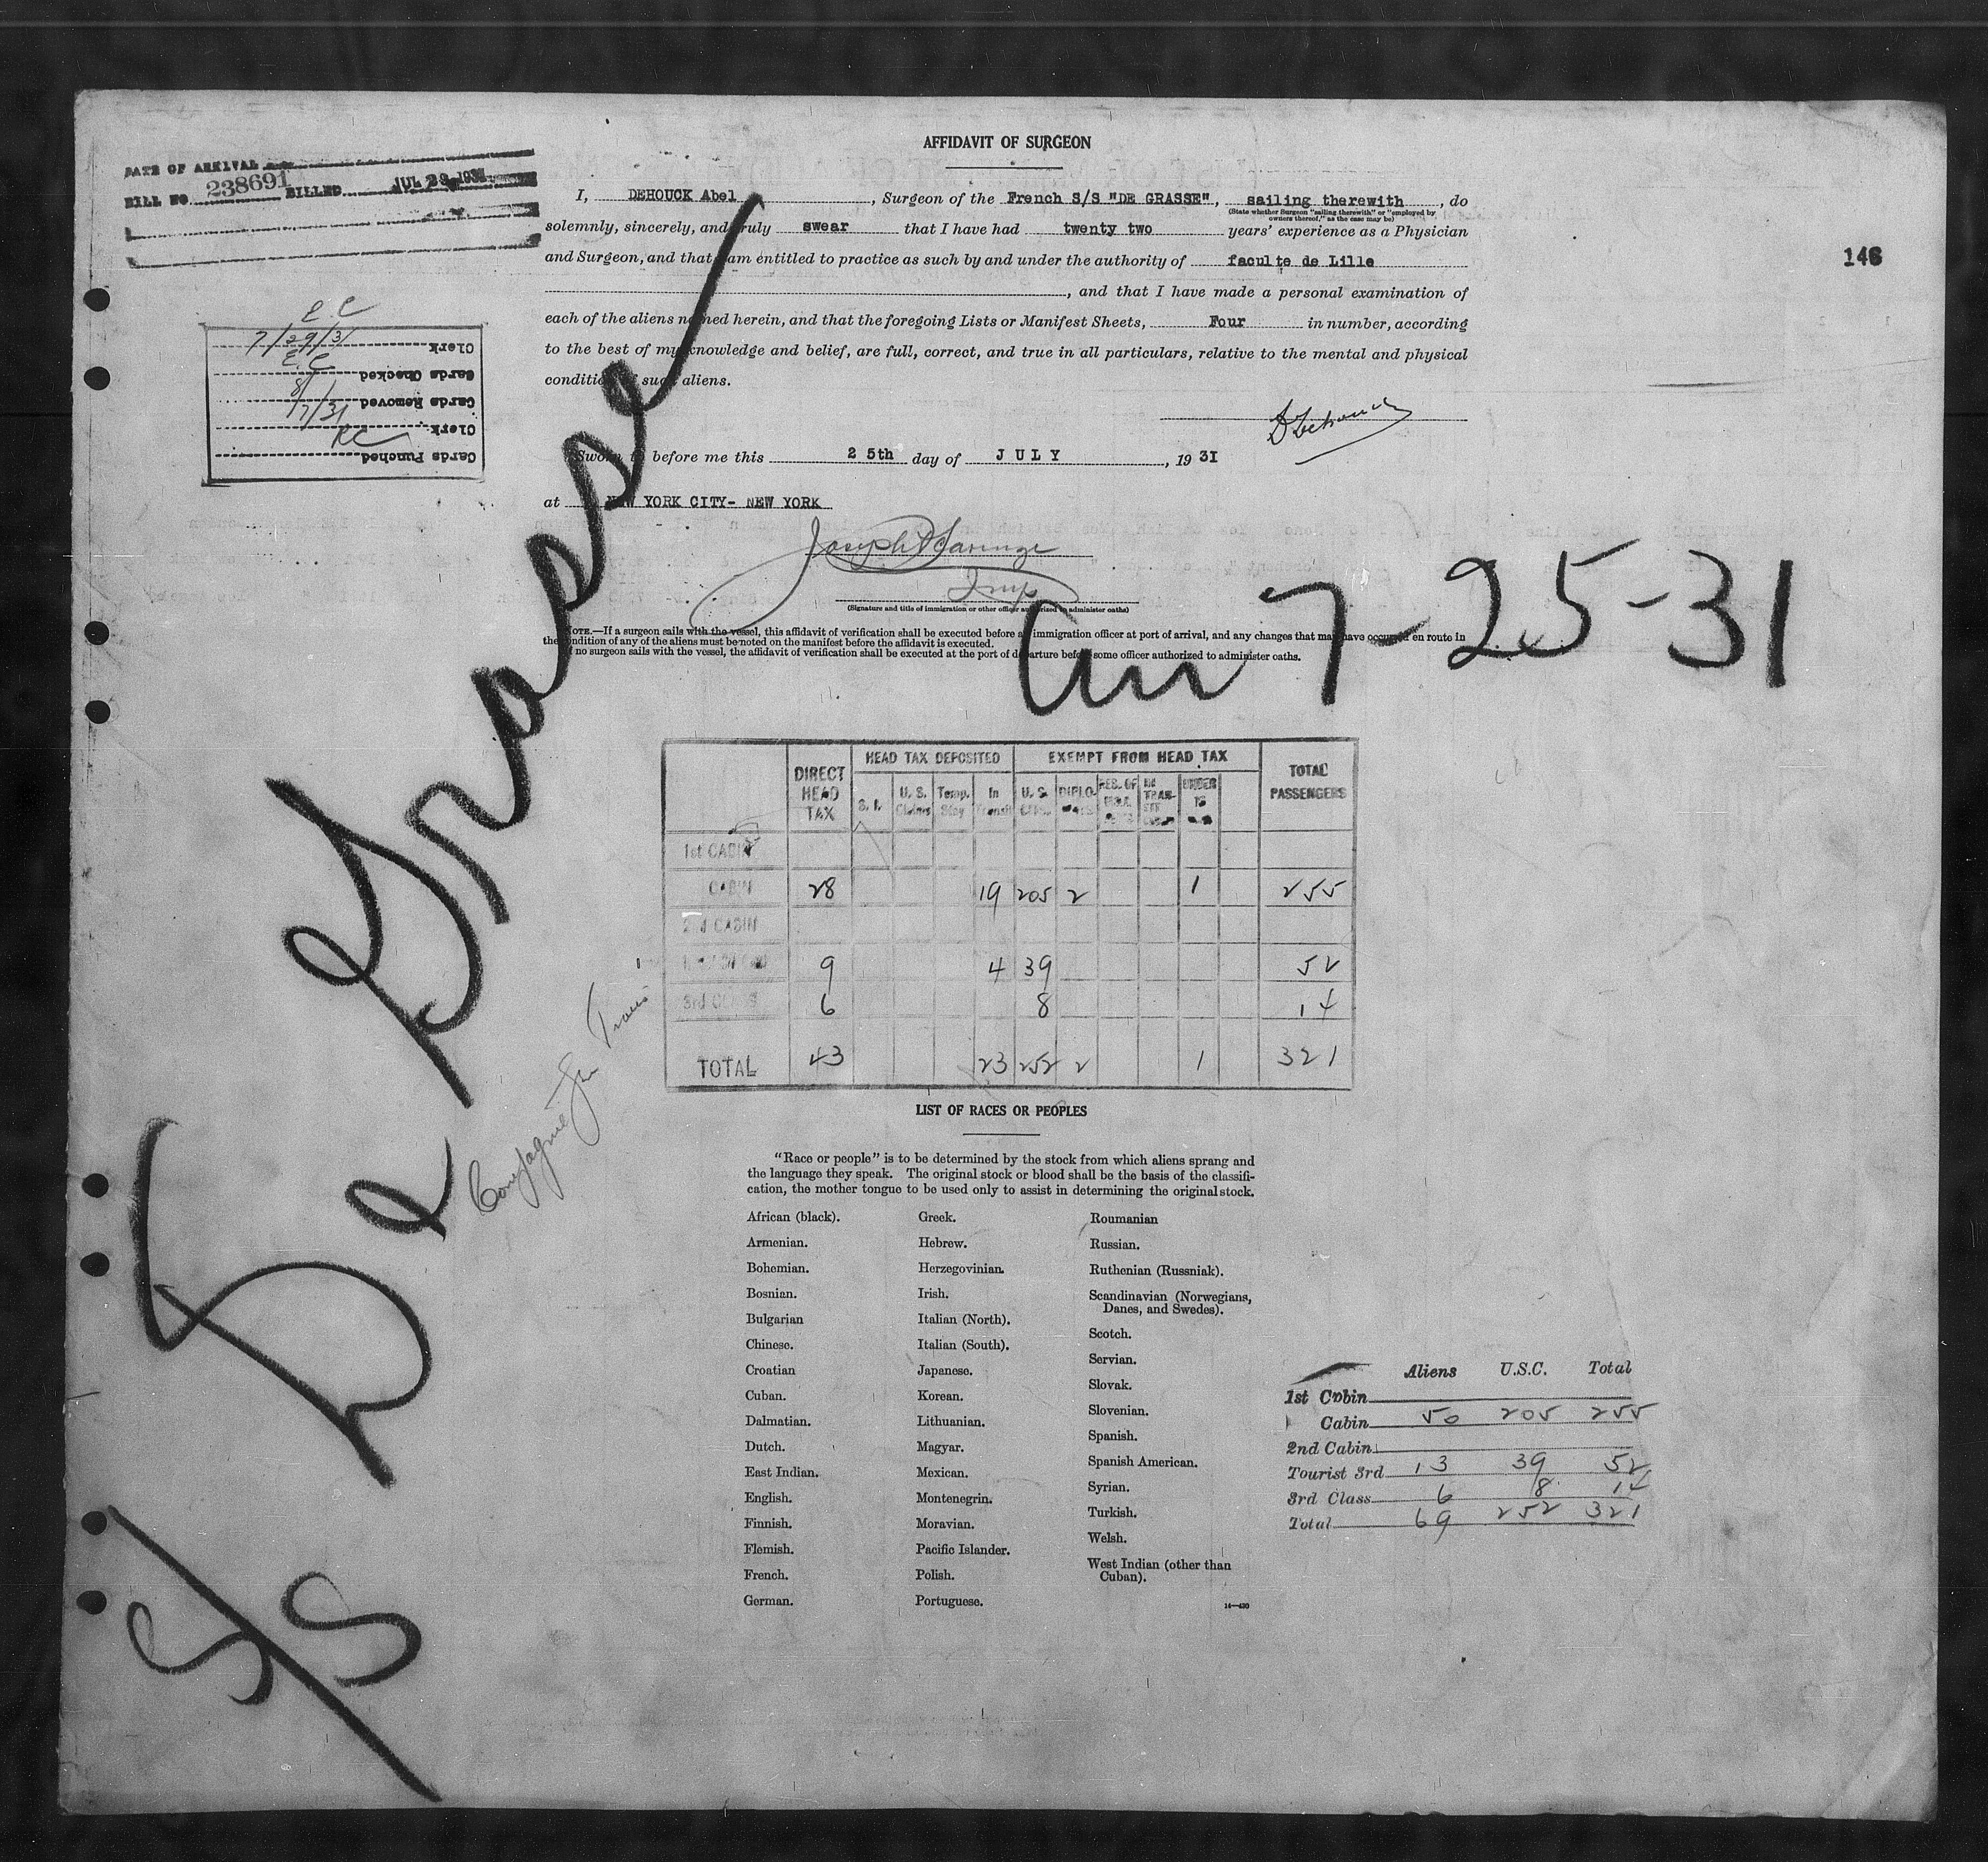 AFFIDAVIT OF SURGEON
DATE OF ARRIVAL
BILL NO. 238691 BILLED JUL 29 1931
I, DEHOUCK Abel, Surgeon of the French S/S "DE GRASSE", sailing therewith, do
(State whether Surgeon "sailing therewith" or "employed by owners thereof," as the case may be)
solemnly, sincerely, and truly swear that I have had twenty two years' experience as a Physician
and Surgeon, and that I am entitled to practice as such by and under the authority of faculte de Lille
, and that I have made a personal examination of
each of the aliens named herein, and that the foregoing Lists or Manifest Sheets, Four in number, according
to the best of my knowledge and belief, are full, correct, and true in all particulars, relative to the mental and physical
condition of such aliens.
146
E. C
7/29/31
Clerk
E.C
Cards Checked
8/7/31
Cards Removed
Clerk
Cards Punched
Sworn to before me this 25th day of JULY, 19 31
at NEW YORK CITY- NEW YORK
(Signature and title of immigration or other officer authorized to administer oaths)
NOTE.—If a surgeon sails with the vessel, this affidavit of verification shall be executed before an immigration officer at port of arrival, and any changes that may have occurred en route in
the condition of any of the aliens must be noted on the manifest before the affidavit is executed.
If no surgeon sails with the vessel, the affidavit of verification shall be executed at the port of departure before some officer authorized to administer oaths.
S/S De Grasse
Arr 7-25-31
Compagnie Gen Trans
DIRECT HEAD TAX HEAD TAX DEPOSITED EXEMPT FROM HEAD TAX TOTAL PASSENGERS
S. I. U. S. Claims Temp. Stay In Transit U. S. DIPLO. RES. OF IN TRAN- UNDER
1st CABIN
CABIN 28 19 205 2 1 255
2nd CABIN
9 4 39 52
3rd CLASS 6 8 14
TOTAL 43 23 252 2 1 321
LIST OF RACES OR PEOPLES
"Race or people" is to be determined by the stock from which aliens sprang and
the language they speak. The original stock or blood shall be the basis of the classifi-
cation, the mother tongue to be used only to assist in determining the original stock.
African (black).
Armenian.
Bohemian.
Bosnian.
Bulgarian
Chinese.
Croatian
Cuban.
Dalmatian.
Dutch.
East Indian.
English.
Finnish.
Flemish.
French.
German.
Greek.
Hebrew.
Herzegovinian.
Irish.
Italian (North).
Italian (South).
Japanese.
Korean.
Lithuanian.
Magyar.
Mexican.
Montenegrin.
Moravian.
Pacific Islander.
Polish.
Portuguese.
Roumanian
Russian.
Ruthenian (Russniak).
Scandinavian (Norwegians,
Danes, and Swedes).
Scotch.
Servian.
Slovak.
Slovenian.
Spanish.
Spanish American.
Syrian.
Turkish.
Welsh.
West Indian (other than
Cuban).
14—430
Aliens U.S.C. Total
1st Cabin
Cabin 50 205 255
2nd Cabin
Tourist 3rd 13 39 52
3rd Class 6 8 14
Total 69 252 321